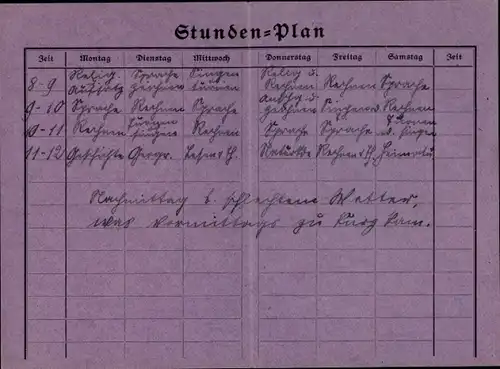 Stunden=Plan
Zeit Montag Dienstag Mittwoch Donnerstag Freitag Samstag Zeit
Relig. Sprache Singen Relig u.
8-9 Aufsatz zeichnen turnen Rechnen Rechnen Sprache
9-10 Sprache Rechnen Sprache zeichnen Singen Rechnen
Turnen Turnen
10-11 Rechnen Singen Rechnen Sprache Sprache u. Singen
11-12 Geschichte Geogr. Lesen Naturkde Rechnen Heimatkd
Nachmittag b. schlechtem Wetter,
was vormittags zu kurz kam.